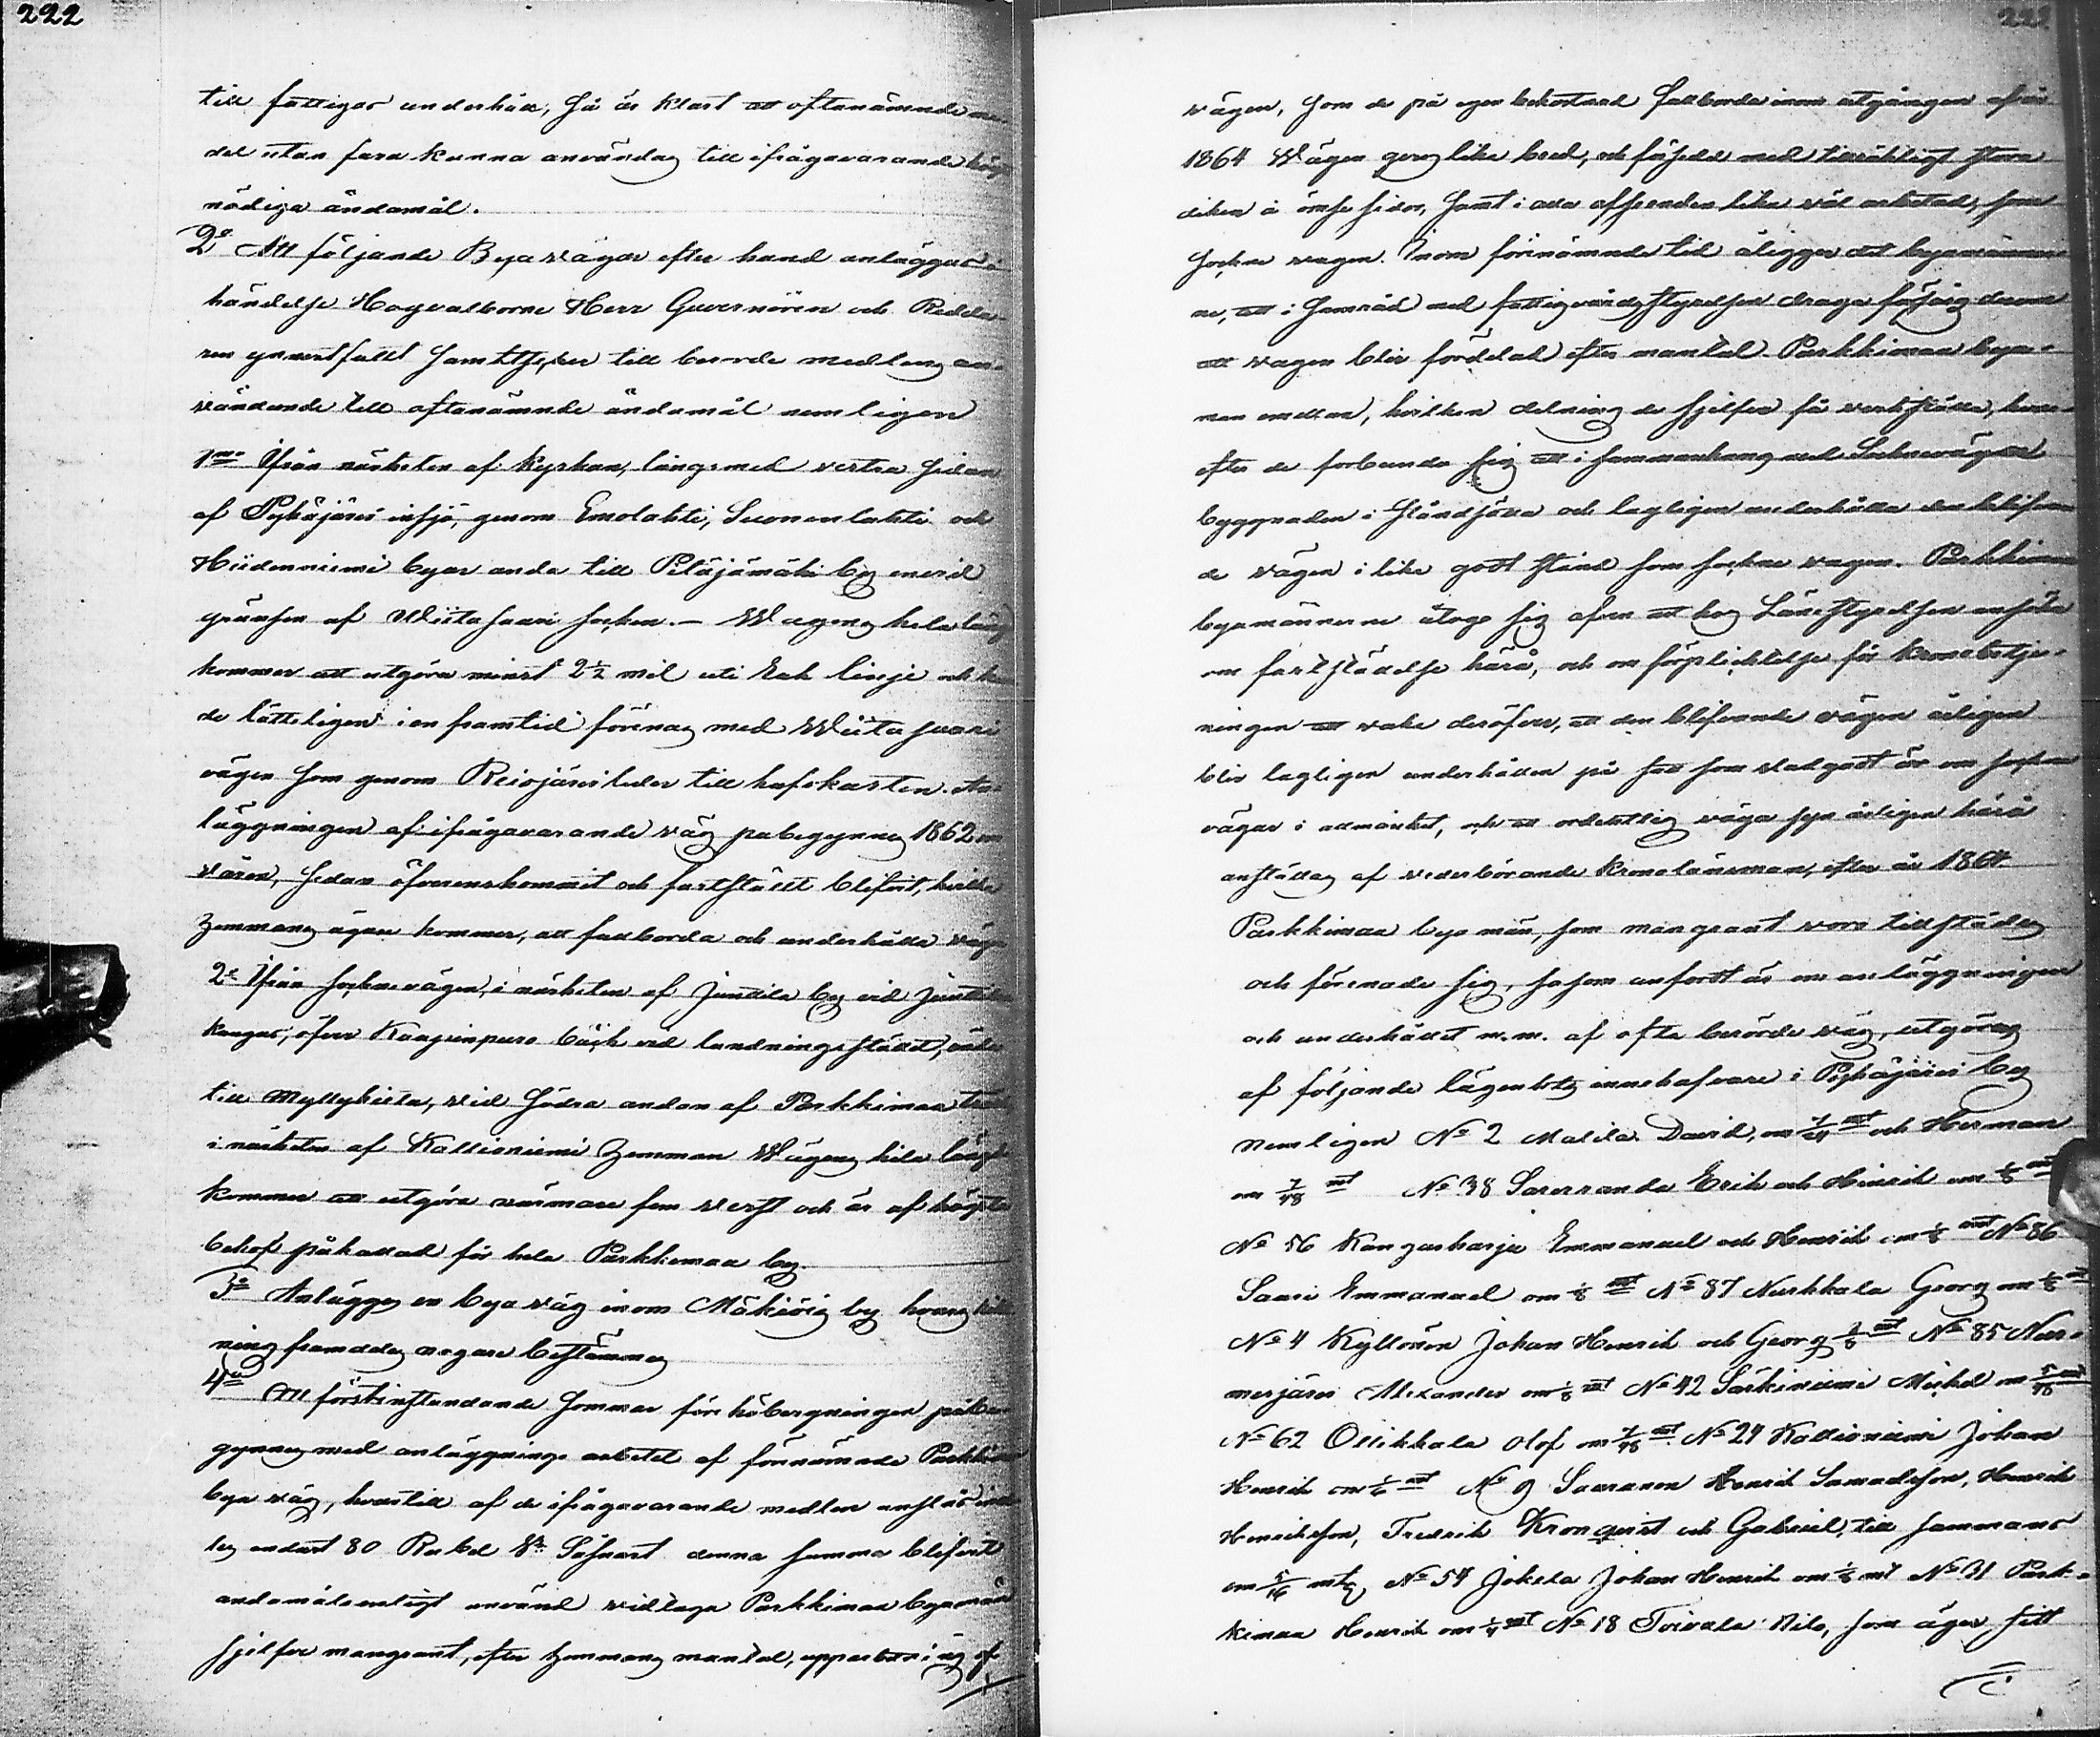 222
till fattigas underhåll, så är klart att oftanämnde me
del utan fara kunna användas till ifrågavarande hög
nödiga ändamål.
2o Att följande Byavägar efter hand anläggas i
händelse Högvälborne Herr Guvernören och Riddar
ren gunstfullt samtycker till berörde medlens an-
vändande till oftanämnde ändamål nemligen
1mo Ifrån närheten af Kyrkan, längsmed vestra sidan
af Pyhäjärvi insjö, genom Emolahti, Suonenlahti och
Hiidenniemi byar ända till Peläjämäki by invid
gränsen af Wiitasaari socken. - Wägens hela läng
kommer att utgöra minst 2½ mil uti Rak linje och k
de lätteligen i en framtid förenas med Wiitasaari
vägen som genom Reisjärvi leder till hafskusten. An-
läggningen af ifrågavarande väg påbegynnes 1862 om
våren, sedan öfverenskommit och fastställt blifvit, hvilka
hemmans ägare kommer, att fullborda och underhålla väge
2o Ifrån sockne vägen, i närheten af Juntila by vid Juntila
kangas, öfver Kaapinpuro bäck vid landningsstället,
till Myllyhiela, vid södra ändan af Parkkimaa träsk
i närheten af Kallioniemi hemman Wägens hela längd
kommer att utgöra närmare fem verst och är af högsta
behof påkallad för hela Parkkimaa by.
3o Anlägges en byaväg inom Mäkiöis by hvars rikt
ning framdeles nogare bestämmes
4o Att förstinstundande sommar före höbergningen påbe-
gynnes med anläggnings arbetet af förenämnde Parkkimaa
bya väg, hvartill af de ifrågavarande medlen anslås
les endast 80 Rubel Sr. Såsnart denna summa blifvit
andamålsenligt använd vidtaga Parkkimaa byamän
sjelfve mangrant, efter hemmans mantal, upparbetning af
222
vägen, som de på egen bekostnad fullborda inom utgången af år
1864 Wägen göres lika bred, och försedd med tillräckligt stora
diken å ömse sidor, samt i alla afseenden lika väl arbetad, som
sockne vägen. Inom förenämnde tid åligger det byamänne
ne, att i samråd med fattigvårdsstyrelsen draga försorg derom
att vägen blir fördelad efter mantal Parkkimaa bya-
män emellan, hvilken delning de sjelfva få verkställa, hvar-
efter de förbunda sig att i sammanhang med Socknevägens
byggnaden i ståndsätta och lagligen underhålla den blifvan
de vägen i lika godt stånd som sockne vägen. Parkkimaa
byamännerne åtogo sig äfven att hos Länestyrelsen ansöka
om fastställelse härå, och om förplicktelse för kronobetje-
ningen att vaka deröfver, att den blifvande vägen årligen
blir lagligen underhållen på sätt som stadgadt är om sockne
vägar i allmänhet, och att ordentlig väga syn årligen härå
anställes af vederbörande kronolänsman, efter år 1864
Parkkimaa bya män, som mangrant voro tillstädes
och förenade sig, såsom anfördt är om anläggningen
och underhållet m.m. af ofta berörde väg, utgöras
af följande lägenhets innehafvare i Pyhäjärvi by
nemligen No 2 Malila David, om 7/48 mt och Herman
om 7/48 mt No 38 Savenranda Erik och Hinrik om 1/8 mt
No 56 Kangasharju Emmanuel och Henrik om 1/8 mt No 86
Saari Emmanuel om 1/8 mt No 87 Nurkkala Georg om 1/8 mt
No 4 Kyllönen Johan Henrik och Georg 3/8 mt No 85 Nur-
mesjärvi Alexander om 1/8 mt No 42 Särkiniemi Mickel om 5/48 mt
No 62 Ollikkala Olof om 7/48 mt No 24 Kallioniemi Johan
Henrik om 1/6 mt No 9 Saaranen Henrik Samuelsson, Henrik
Henriksson, Fredrik Kronqvist och Gabriel, till sammans
om 5/16 mtl, No 54 Jokela Johan Henrik om 1/8 mt No 31 Park-
kimaa Henrik om 1/4 mt No 18 Toivola Nils, som äger sitt